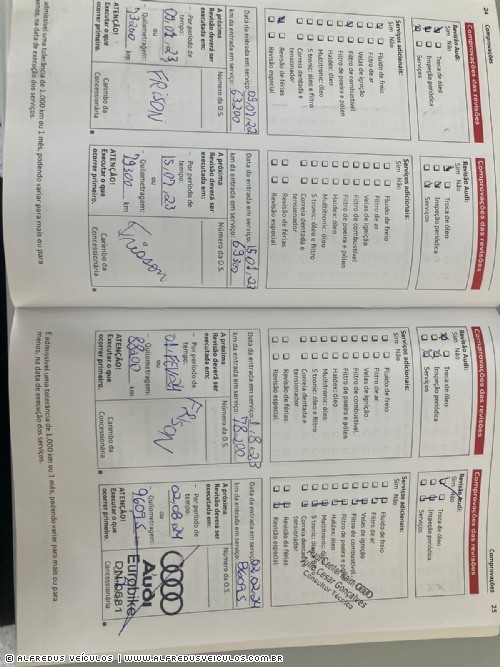 24 Comprovações
Comprovações das revisões
Revisão Audi:
Sim Não
Troca de óleo
Inspeção periódica
Serviços
Serviços adicionais:
Sim Não
Fluido de freio
Filtro de ar
Velas de ignição
Filtro de combustível
Filtro de poeira e pólen
Haldex: óleo
Multitronic: óleo
S tronic: óleo e filtro
Correia dentada e
tensionador
Revisão de férias
Revisão especial
Data da entrada em serviço:
km da entrada em serviço: 63300
Número da O.S.
A próxima
Revisão deverá ser
executada em:
- Por período de
tempo:
ou
- Quilometragem:
73300 km
ATENÇÃO!
Executar o que
ocorrer primeiro.
Carimbo da
Concessionária
Comprovações das revisões
Revisão Audi:
Sim Não
Troca de óleo
Inspeção periódica
Serviços
Serviços adicionais:
Sim Não
Fluido de freio
Filtro de ar
Velas de ignição
Filtro de combustível
Filtro de poeira e pólen
Haldex: óleo
Multitronic: óleo
S tronic: óleo e filtro
Correia dentada e
tensionador
Revisão de férias
Revisão especial
Data da entrada em serviço:
km da entrada em serviço: 69300
Número da O.S.
A próxima
Revisão deverá ser
executada em:
- Por período de
tempo:
ou
- Quilometragem:
79300 km
ATENÇÃO!
Executar o que
ocorrer primeiro.
Carimbo da
Concessionária
É admissível uma tolerância de 1.000 km ou 1 mês, podendo variar para mais ou para
menos, na data de execução dos serviços.
Comprovações 25
Comprovações das revisões
Revisão Audi:
Sim Não
Troca de óleo
Inspeção periódica
Serviços
Serviços adicionais:
Sim Não
Fluido de freio
Filtro de ar
Velas de ignição
Filtro de combustível
Filtro de poeira e pólen
Haldex: óleo
Multitronic: óleo
S tronic: óleo e filtro
Correia dentada e
tensionador
Revisão de férias
Revisão especial
Data da entrada em serviço:
km da entrada em serviço: 78200
Número da O.S.
A próxima
Revisão deverá ser
executada em:
- Por período de
tempo:
ou
- Quilometragem:
88200 km
ATENÇÃO!
Executar o que
ocorrer primeiro.
Carimbo da
Concessionária
Comprovações das revisões
Revisão Audi:
Sim Não
Troca de óleo
Inspeção periódica
Serviços
Serviços adicionais:
Sim Não
Fluido de freio
Filtro de ar
Velas de ignição
Filtro de combustível
Filtro de poeira e pólen
Haldex: óleo
Multitronic: óleo
S tronic: óleo e filtro
Correia dentada
tensionador
Revisão de férias
Revisão especial
Cesar Gonçalves
Consultor Técnico
Data da entrada em serviço:
km da entrada em serviço:
Número da O.S.
A próxima
Revisão deverá ser
executada em:
- Por período de
tempo:
ou
- Quilometragem:
ATENÇÃO!
Executar o que
ocorrer primeiro.
Audi
Eurobike
Concessionária
É admissível uma tolerância de 1.000 km ou 1 mês, podendo variar para mais ou para
menos, na data de execução dos serviços.
© ALFREDUS VEÍCULOS | WWW.ALFREDUSVEICULOS.COM.BR